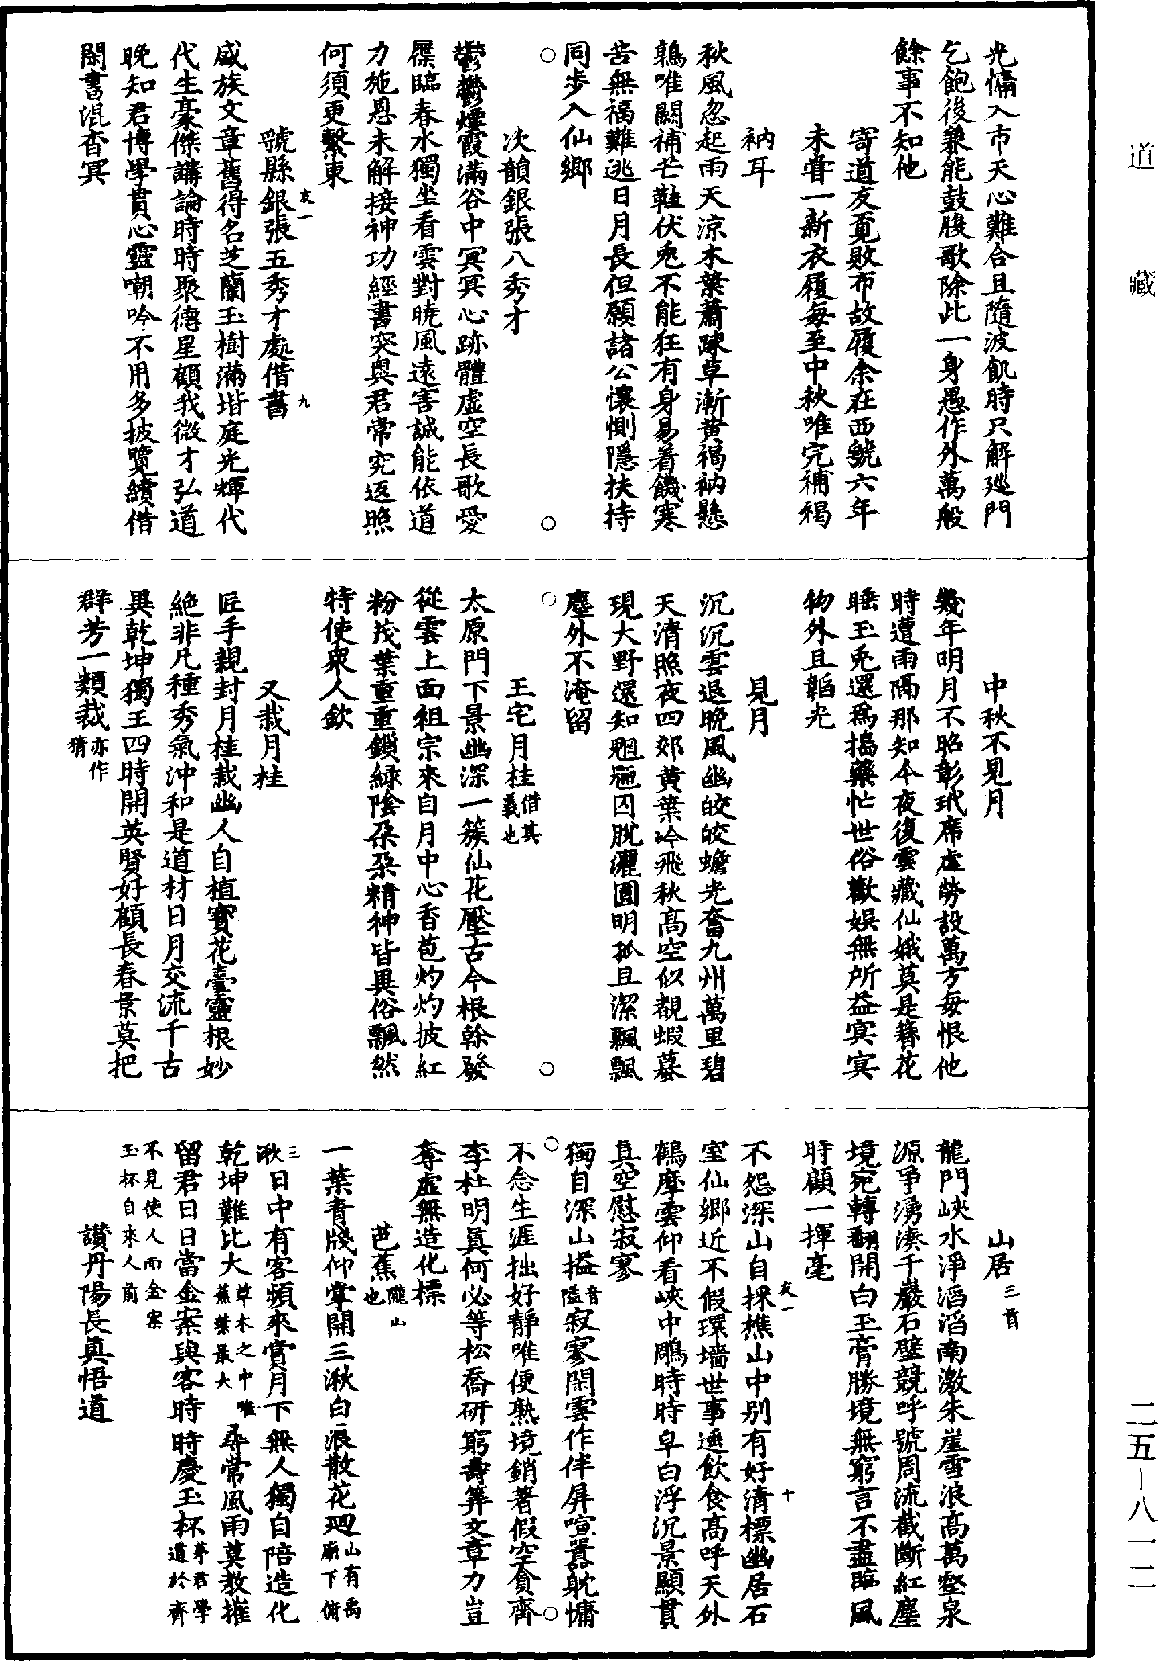 道藏
光慵入市天心難合且隨波飢時只解廵門
乞飽後兼能鼓腹歌除此一身愚作外萬般
餘事不知他
寄道友覓敗布故履余在西虢六年
未甞一新衣履每至中秋唯完補褐
衲耳
秋風忽起雨天涼木葉蕭踈草漸黄褐衲懸
鶉唯闕補芒鞋伏兎不能狂有身易着饑寒
苦無福難逃日月長但願諸公懷惻隱扶持
同步入仙鄉
次韻銀張八秀才
鬱鬱煙霞滿谷中冥冥心跡體虛空長歌愛
屧臨春水獨坐看雲對曉風遠害誠能依道
力施恩未解接神功經書突與君常究返照
何須更繫東
虢縣銀張五秀才處借書
友一
九
咸族文章舊得名芝蘭玉樹滿堦庭光輝代
代生豪傑講論時時聚德星顧我微才弘道
晚知君博學貫心靈嘲吟不用多披覽續借
閑書混杳冥
中秋不見月
幾年明月不昭彰玳席虛勞設萬方每恨他
時遭雨隔那知今夜復雲藏仙娥莫是簪花
睡玉兎還爲搗藥忙世俗歡娱無所益冥冥
物外且韜光
見月
沉沉雲退晚風幽皎皎蟾光奮九州萬里碧
天清照夜四郊黄葉冷飛秋高空似覩蝦蟇
現大野還知魍魎囚脱灑圓明孤且潔飄飄
塵外不淹留
王宅月桂借其
義也
太原門下景幽深一簇仙花壓古今根幹發
從雲上面祖宗來自月中心香苞灼灼披紅
粉茂葉重重鎖緑陰朶朶精神皆異俗飄然
特使衆人欽
又栽月桂
匠手親封月桂栽幽人自植寳花臺靈根妙
絶非凡種秀氣沖和是道材日月交流千古
異乾坤獨王四時開英賢好顧長春景莫把
群芳一類裁亦作
猜
山居三首
龍門峽水淨滔滔南激朱崖雪浪高萬壑泉
源爭湧湊千巖石壁競呼號周流截斷紅塵
境宛轉翻開白玉膏勝境無窮言不盡臨風
時顧一揮毫
友一
十
不怨深山自採樵山中别有好清標幽居石
室仙鄉近不假環墻世事遥飲食高呼天外
鶴摩雲仰看峽中鵰時時皁白浮沉景顯貫
真空慰寂寥
獨自深山搤音
隘寂寥閑雲作伴屏喧嚣躭慵
不念生涯拙好靜唯便熟境銷著假空貪齊
李杜明真何必等松喬研窮壽筭文章力豈
奪虛無造化標
芭蕉隴山
也
一葉青牋仰掌開三湫白浪散花廻山有禹
廟下有
三
湫日中有客頻來賞月下無人獨自陪造化
乾坤難比大草木之中唯
蕉葉最大尋常風雨莫教摧
留君日日當金案與客時時慶玉杯茅君學
道於齊
不見使人而金案
玉杯自來人前
讚丹陽長真悟道
二五－八一二